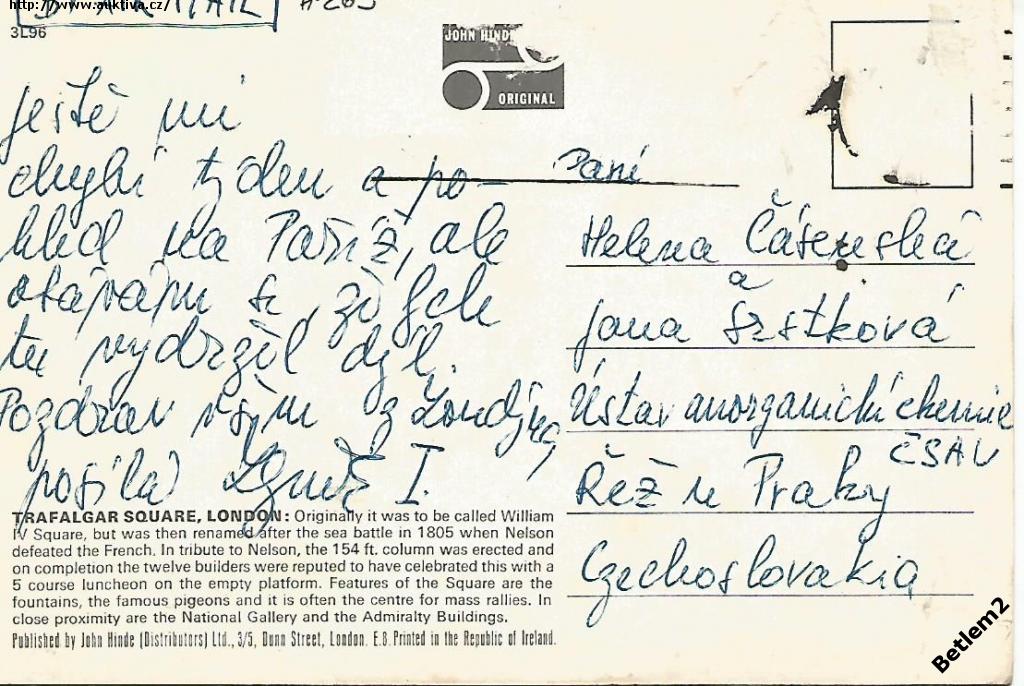 http://www.auktiva.cz/
3L96
JOHN HINDE
ORIGINAL
ještě mi
chybí týden a po-
hled na Paříž, ale
obávám se, že bych
tu vydržel dýl.
Pozdrav všem z Londýna,
posílá I.
Paní
Helena
a
Jana
Ústav anorganické chemie
ČSAV
Řež u Prahy
Czechoslovakia
TRAFALGAR SQUARE, LONDON: Originally it was to be called William
IV Square, but was then renamed after the sea battle in 1805 when Nelson
defeated the French. In tribute to Nelson, the 154 ft. column was erected and
on completion the twelve builders were reputed to have celebrated this with a
5 course luncheon on the empty platform. Features of the Square are the
fountains, the famous pigeons and it is often the centre for mass rallies. In
close proximity are the National Gallery and the Admiralty Buildings.
Published by John Hinde (Distributors) Ltd., 3/5, Dunn Street, London. E.8. Printed in the Republic of Ireland.
Betlem2